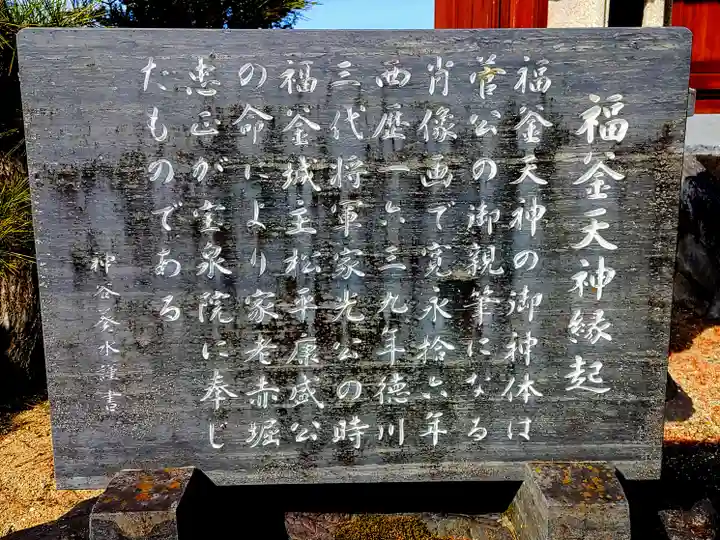 福釜天神縁起
福釜天神の御神体は
菅公の御親筆になる
肖像画で寛永拾六年
西歴一六三九年徳川
三代将軍家光公の時
福釜城主松平康盛公
の命により家老赤堀
恵正が宝泉院に奉じ
たものである
神谷癸水謹書